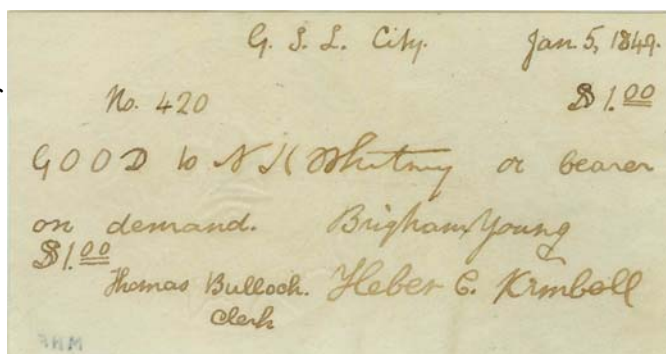 G. S. L. City. Jan 5, 1849.
No. 420 $1.00
GOOD to N K Whitney or bearer
on demand. Brigham Young
$1.00
Thomas Bullock. Heber C. Kimball
Clerk